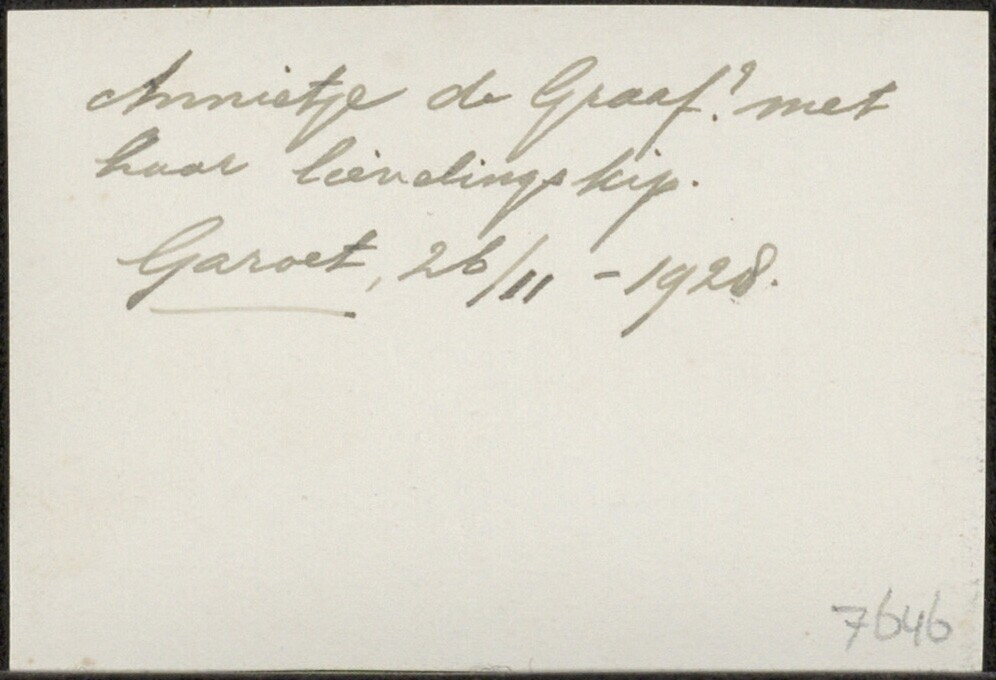 Annietje de Graaf? met
haar lievelingskip.
Garoet, 26/11 - 1928.
7646